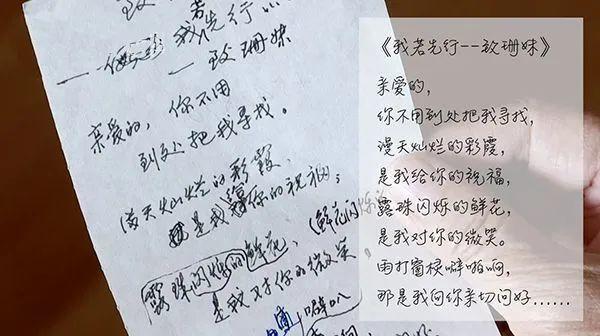 我若先行……
——致珊妹
亲爱的,你不用
到处把我寻找。
漫天灿烂的彩霞、
是我 你的祝福;
露珠闪烁的鲜花、(鲜花闪烁
是我对你的微笑。
噼叭
《我若先行--致珊妹》
亲爱的,
你不用到处把我寻找,
漫天灿烂的彩霞,
是我给你的祝福,
露珠闪烁的鲜花,
是我对你的微笑。
雨打窗棂噼啪响,
那是我向你亲切问好......